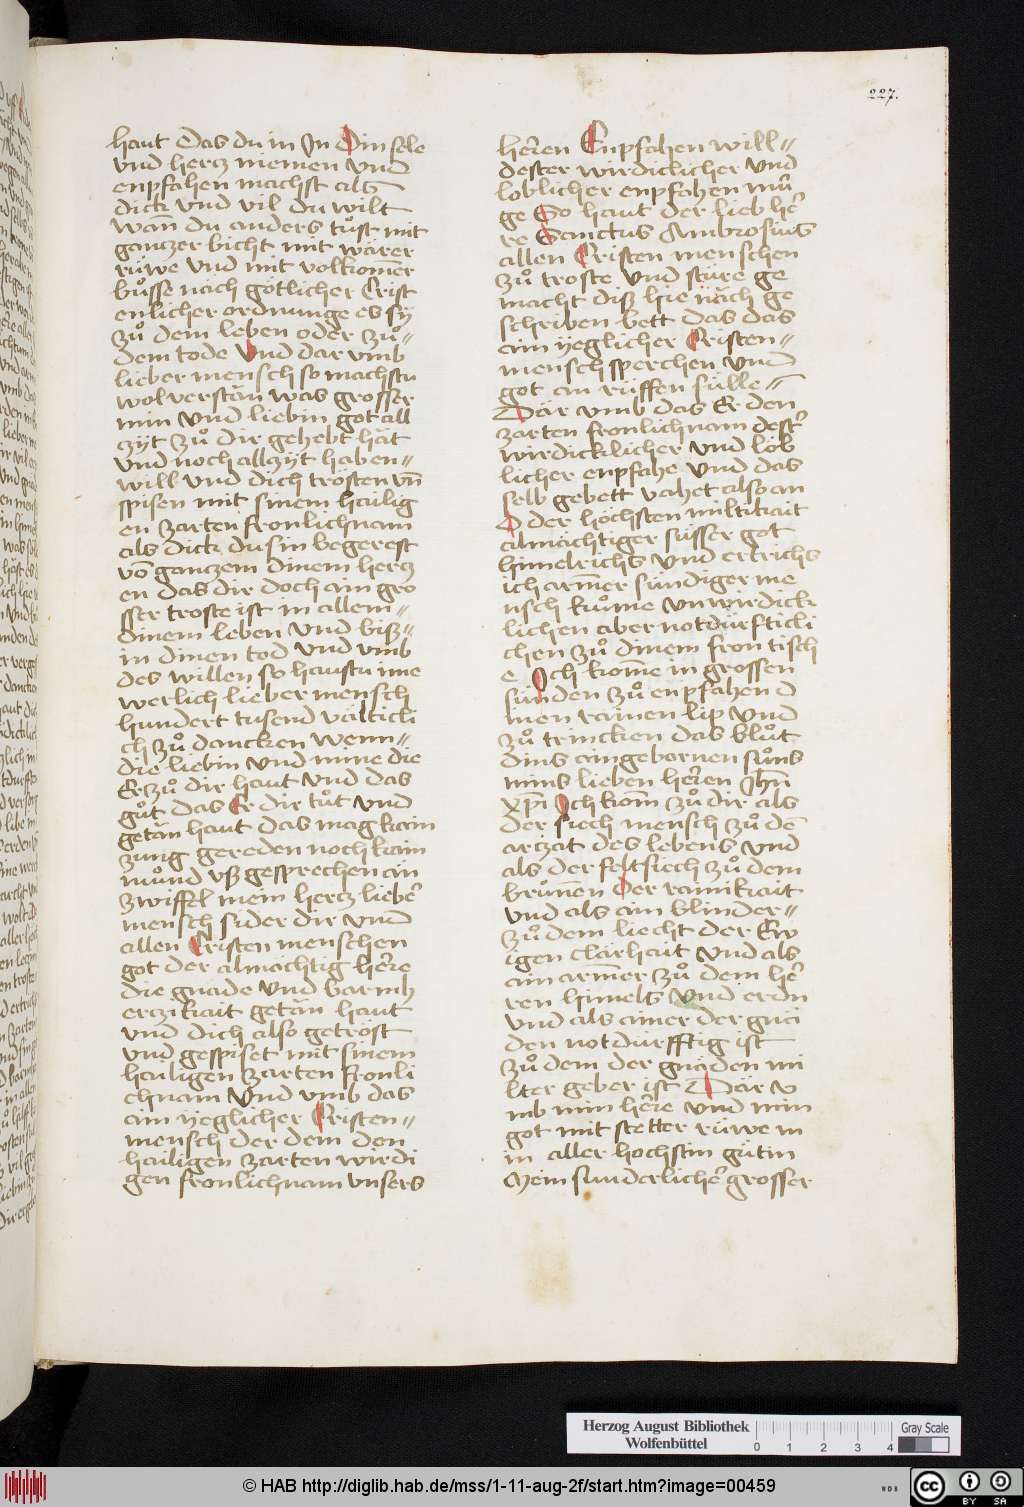 227.
haut Das du in In Din sele
vnd hercz niemen vnd
enpfahen machst als
dick vnd vil du wilt
wān du anders tůst mit
ganczer bicht mit wārer
rüwe vnd mit volkomer
bůsse nāch götlicher Crist
enlicher ordnunge es sÿ
zů dem leben oder zů=
dem tode Vnd dar vmb
lieber mensch so machstu
wol verstān was grosser
min vnd liebin got all
zÿt zů dir gehebt hāt
vnd noch allzÿt haben=
will vnd dich trösten vn̄
spisen mit sinem hailig
en zarten fronlichnam
als dick du sin begerest
vō ganczem dinem hercz
en das dir doch ain gro
sser troste ist in allem=
dinem leben vnd bisz=
in dinen tod vnd vmb
des willen so haustu ime
werlich lieber mensch
hundert tusend vältickli
ch zů dancken wenn=
die liebin vnd mine die
Er zů dir haut vnd das
gůt das Er dir tůt vnd
getān haut das mag kain
zung gereden noch kain
můnd vsz gesprechen ān
zwiffel mein hercz lieber
mensch sider dir vnd
allen Cristen menschen
got der almächtig herre
die gnäde vnd barmh
erczikait getān haut
vnd dich also getröst
vnd gespiset mit sinem
hailigen zarten fronli
chnam vnd vmb das
ain ÿeglicher Cristen=
mensch der dem den
hailigen zarten wirdi
gen fronlichnam vnsers
herren Enpfahen will=
dester wirdiclicher vnd
loblicher enpfahen mü
ge So haut der lieb her
re Sanctus Ambrosius
allen Cristen menschen
zů troste vnd stüre ge
macht disz hie nāch ge
schriben bett das das
ain ÿeglicher Cristen=
mensch sperchen vnd
got an rüffen sülle=
Där vmb das Er den
zarten fronlichnam dest
wirdicklicher vnd löb
licher enpfahe vnd das
selb gebett vahet also an
O der höchsten miltikait
almächtiger süsser got
himelrichs vnd ertrichs
ich armer sündiger me
nsch kume vnwirdick
lichen aber notdürfticli
chen zů dinem fron tisch
e Ich kome in grossen
sünden zů enpfahen d
inen rainen lip vnd
zů trincken das blůt
dins aingebornen sůns
mins lieben herren Jhu
xpi Ich kom zů dir als
der siech mensch zů dē
arczat des lebens vnd
als der feltsiech zů dem
brunnen der rainikait
vnd als ain blinder=
zů dem liecht der Ew
igen clārhait vnd als
ain armer zů dem her
ren himels vnd erdn
vnd als ainer der gnā
den notdürfftig ist
zů dem der gnāden mi
lter geber ist Där v
mb min herre vnd min
got mit stetter rüwe m
in aller hochstin gütin
Mein sunderlicher grosser
Herzog August Bibliothek
Wolfenbüttel
0 1 2 3 4
Gray Scale
© HAB http://diglib.hab.de/mss/1-11-aug-2f/start.htm?image=00459
WDB
cc BY SA